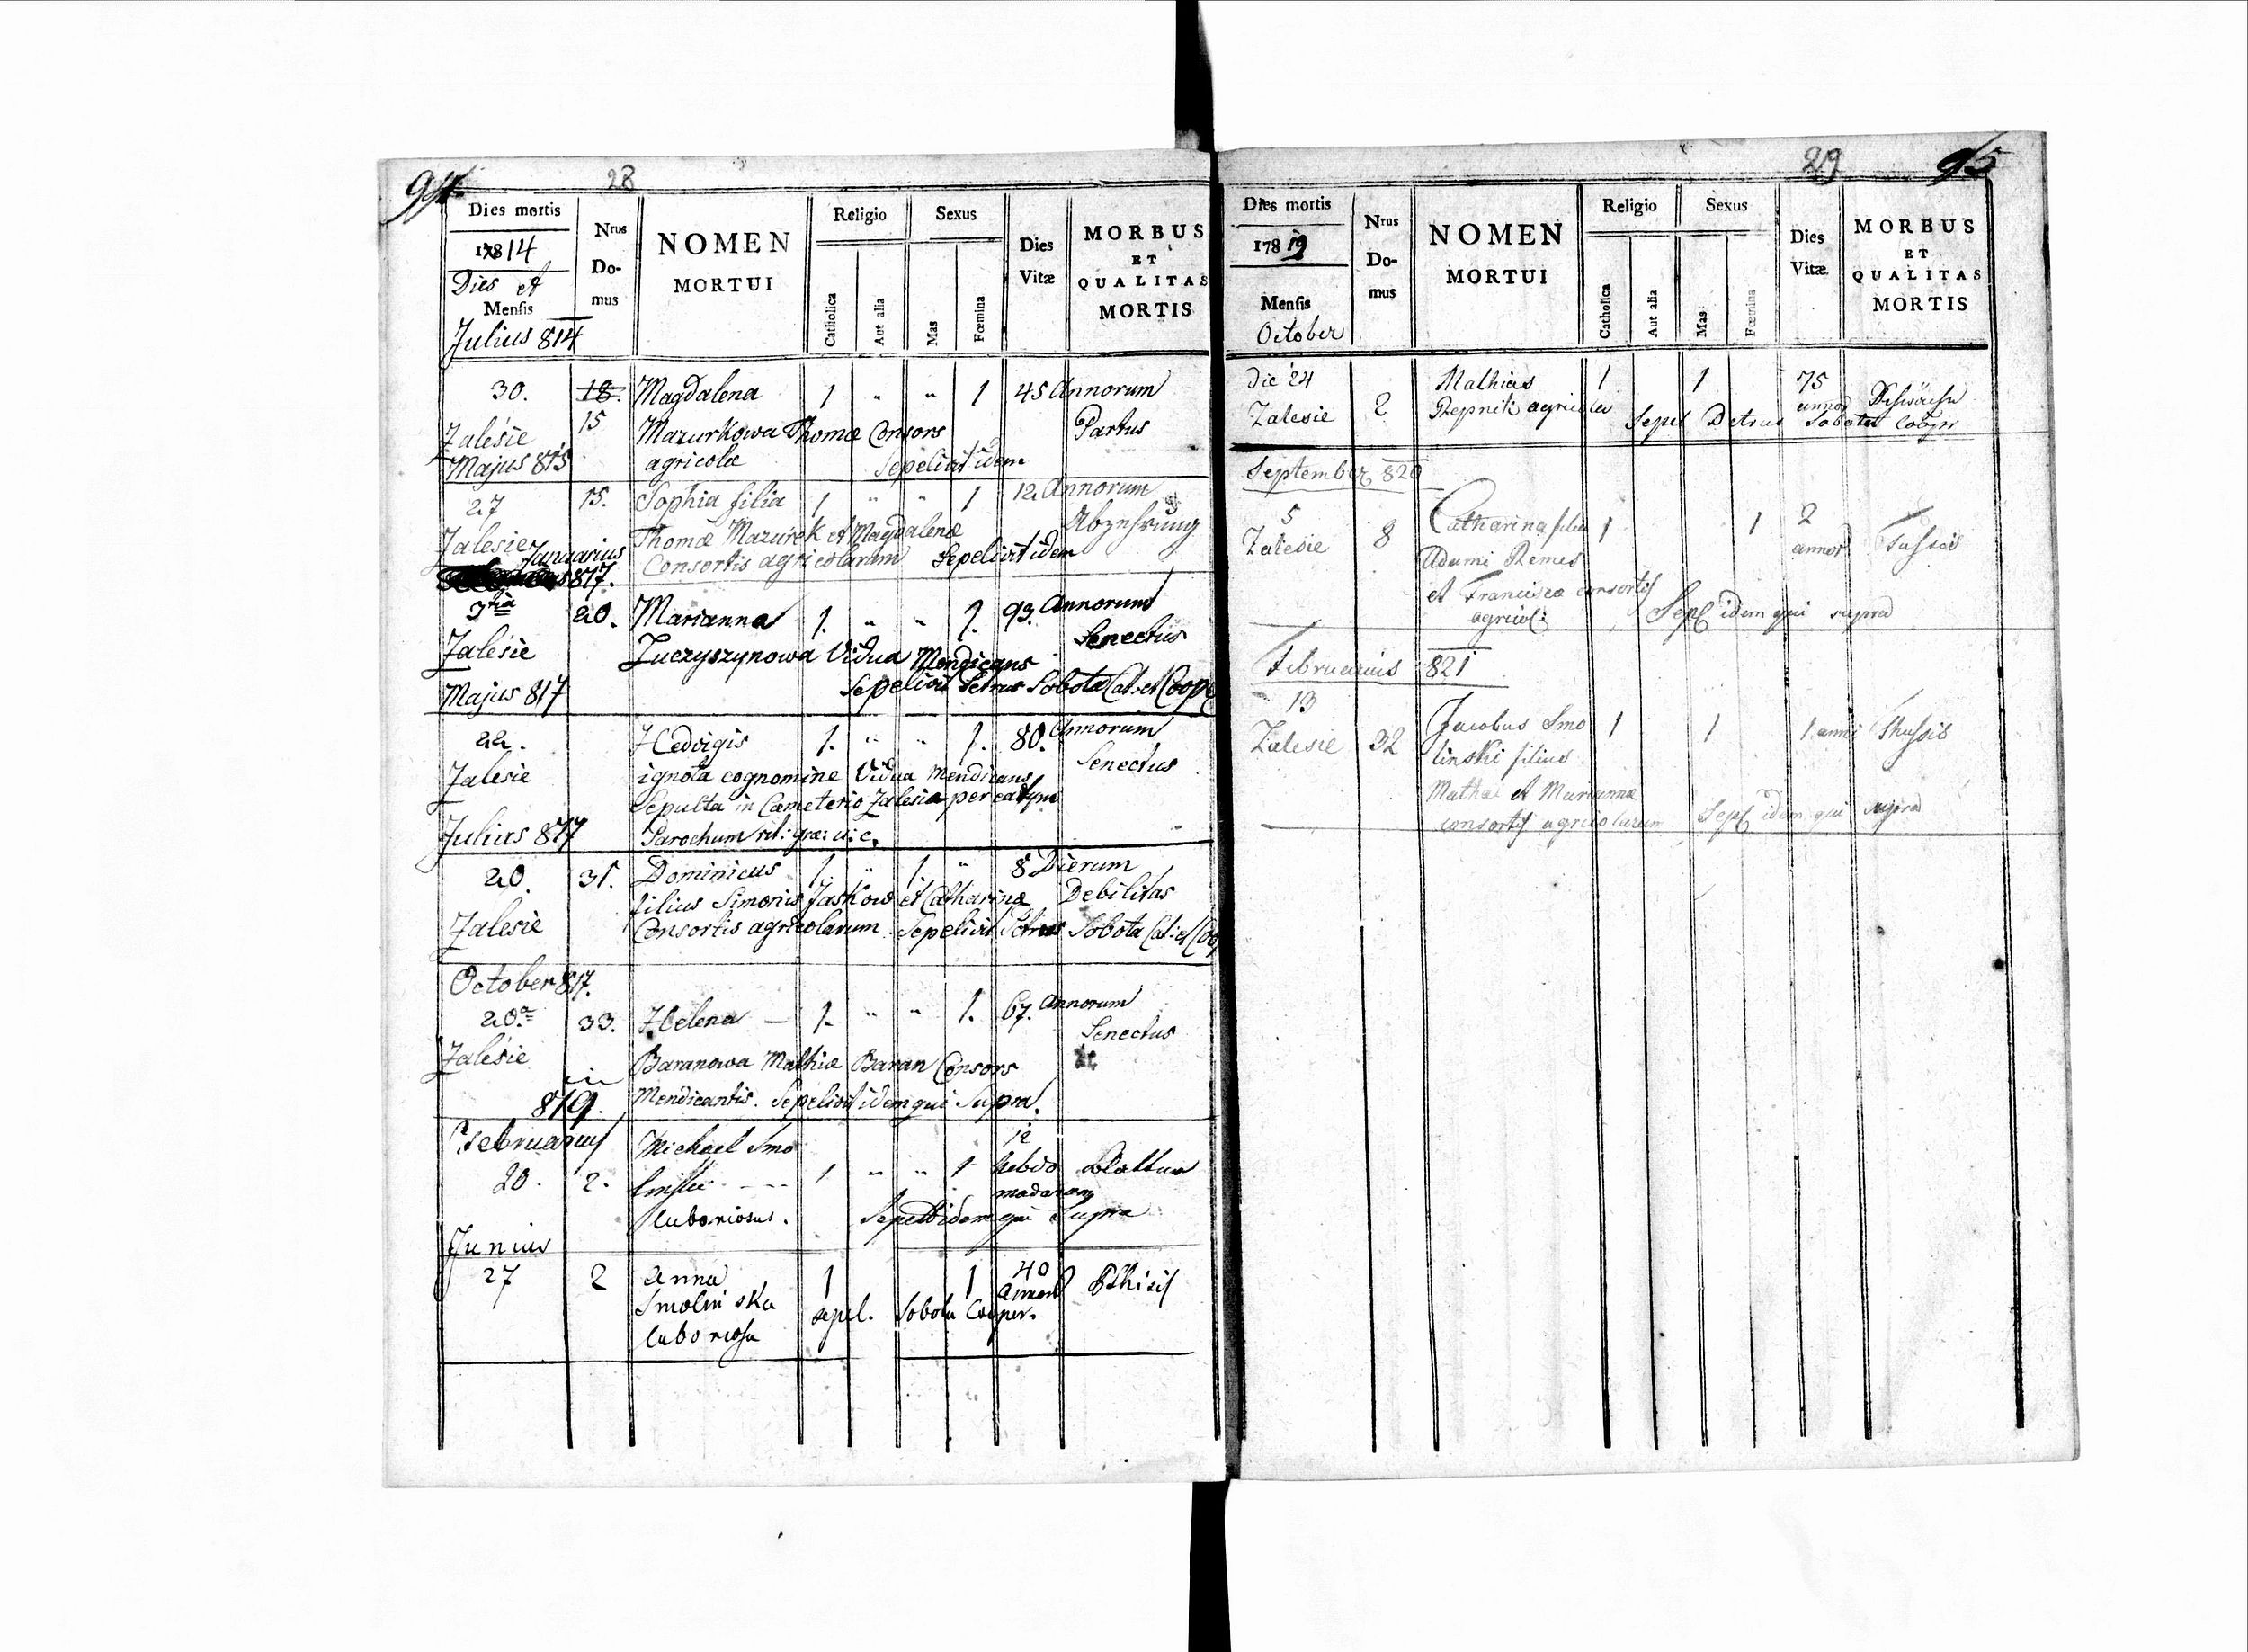 94 28
Dies mortis Nrus Domus NOMEN MORTUI Religio Sexus Dies Vitæ MORBUS ET QUALITAS MORTIS
17814
Dies et
Mensis Catholica Aut alia Mas Fœmina
Julius 814
30. 18. Magdalena 1 " " 1 45 Annorum
Zalesie 15 Mazurkowa Thomæ Consors Partus
Majus 815 agricolæ Sepelivit idem
27 15. Sophia filia 1 " " 1 12 Annorum
Zalesie Thomæ Mazurek et Magdalenæ Abzehrung
Januarius 817. Consortis agricolarum Sepelivit idem
3tia 20. Marianna 1. " " 1. 93. Annorum
Zalesie Juczyszynowa Vidua Mendicans Senectus
Majus 817 Sepelivit Petrus Sobota Cat. et Coop
22. Hedvigis 1. " " 1. 80. Annorum
Zalesie ignota cognomine Vidua mendicans Senectus
Sepulta in Cœmeterio Zalesia per
Julius 817 Parochum rit: græ: u: c.
20. 31. Dominicus 1. " 1. " 8 Dierum
filius Simonis Jaskow et Catharinæ Debilitas
Zalesie Consortis agricolarum Sepelivit Petrus Sobota Cat: et Coop
October 817.
20a 33. Helena — 1. " " 1. 67. Annorum
Senectus
Zalesie Baranowa Mathiæ Baran Consors
819. Mendicantis. Sepelivit idem qui Supra.
Februarius Michael Smo 12
20. 2. 1 " " 1 hebdo
madarum
laboriosus. Sepel idem qui Supra
Junius
27 2 Anna 1 1 40 Pthisis
Smolinska sepel. Sobota Cooper. annor
laboriosa
29 95
Dies mortis Nrus Domus NOMEN MORTUI Religio Sexus Dies Vitæ MORBUS ET QUALITAS MORTIS
17819
Mensis Catholica Aut alia Mas Fœmina
October
Die 24 Mathias 1 1 75
Zalesie 2 Repnik agricola Sepel Petrus Sobota Coopr
annor
September 820
5 Catharina filia 1 1 2
Zalesie 8 Adami Remes annor Tussis
et Francisca consortis
agricol: Sepel idem qui supra
Februarius 821
13
Zalesie 32 Jacobus Smo 1 1 1 anni Thussis
linski filius
Mathæi et Mariannæ
consortis agricolarum Sepel idem qui supra